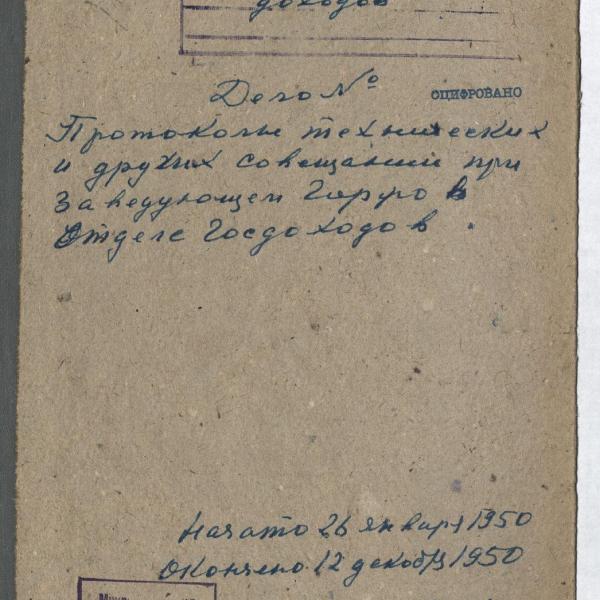 доходов
Дело №
ОЦИФРОВАНО
Протоколы технических
и других совещаний при
Заведующем Горфо в
Отделе Госдоходов.
Начато 26 января 1950
Окончено 12 декабря 1950